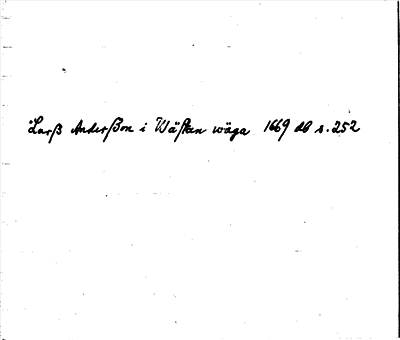 Larß Anderßon i Wäſtan wäga 1669 db s. 252